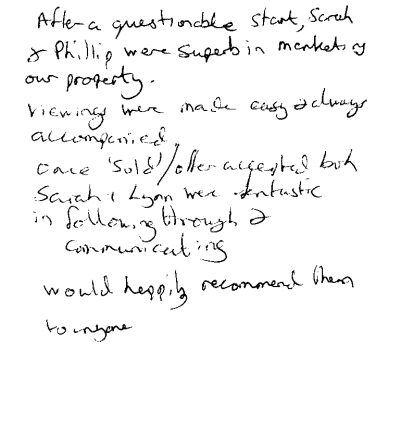 After a questionable start, Sarah
& Phillip were superb in marketing
our property.
Viewings were made easy & always
accompanied.
Once 'Sold'/offer accepted both
Sarah & Lynn were fantastic
in following through &
communicating
would happily recommend them
to anyone